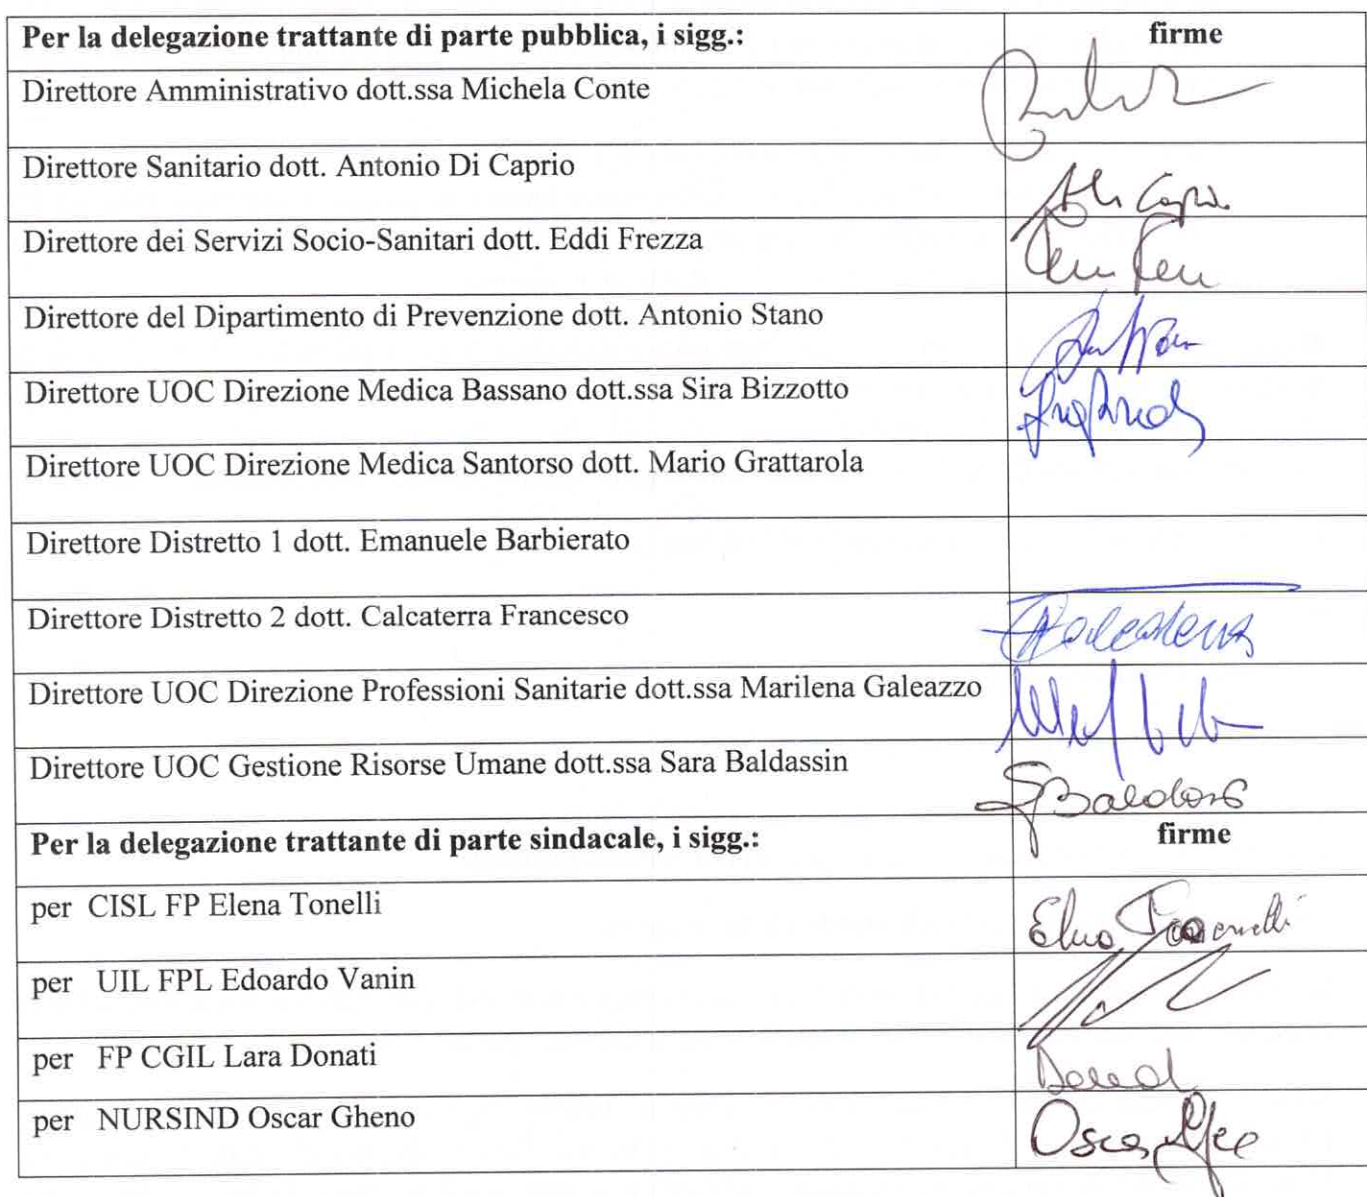 Per la delegazione trattante di parte pubblica, i sigg.: firme
Direttore Amministrativo dott.ssa Michela Conte
Direttore Sanitario dott. Antonio Di Caprio
Direttore dei Servizi Socio-Sanitari dott. Eddi Frezza
Direttore del Dipartimento di Prevenzione dott. Antonio Stano
Direttore UOC Direzione Medica Bassano dott.ssa Sira Bizzotto
Direttore UOC Direzione Medica Santorso dott. Mario Grattarola
Direttore Distretto 1 dott. Emanuele Barbierato
Direttore Distretto 2 dott. Calcaterra Francesco
Direttore UOC Direzione Professioni Sanitarie dott.ssa Marilena Galeazzo
Direttore UOC Gestione Risorse Umane dott.ssa Sara Baldassin
Per la delegazione trattante di parte sindacale, i sigg.: firme
per CISL FP Elena Tonelli
per UIL FPL Edoardo Vanin
per FP CGIL Lara Donati
per NURSIND Oscar Gheno